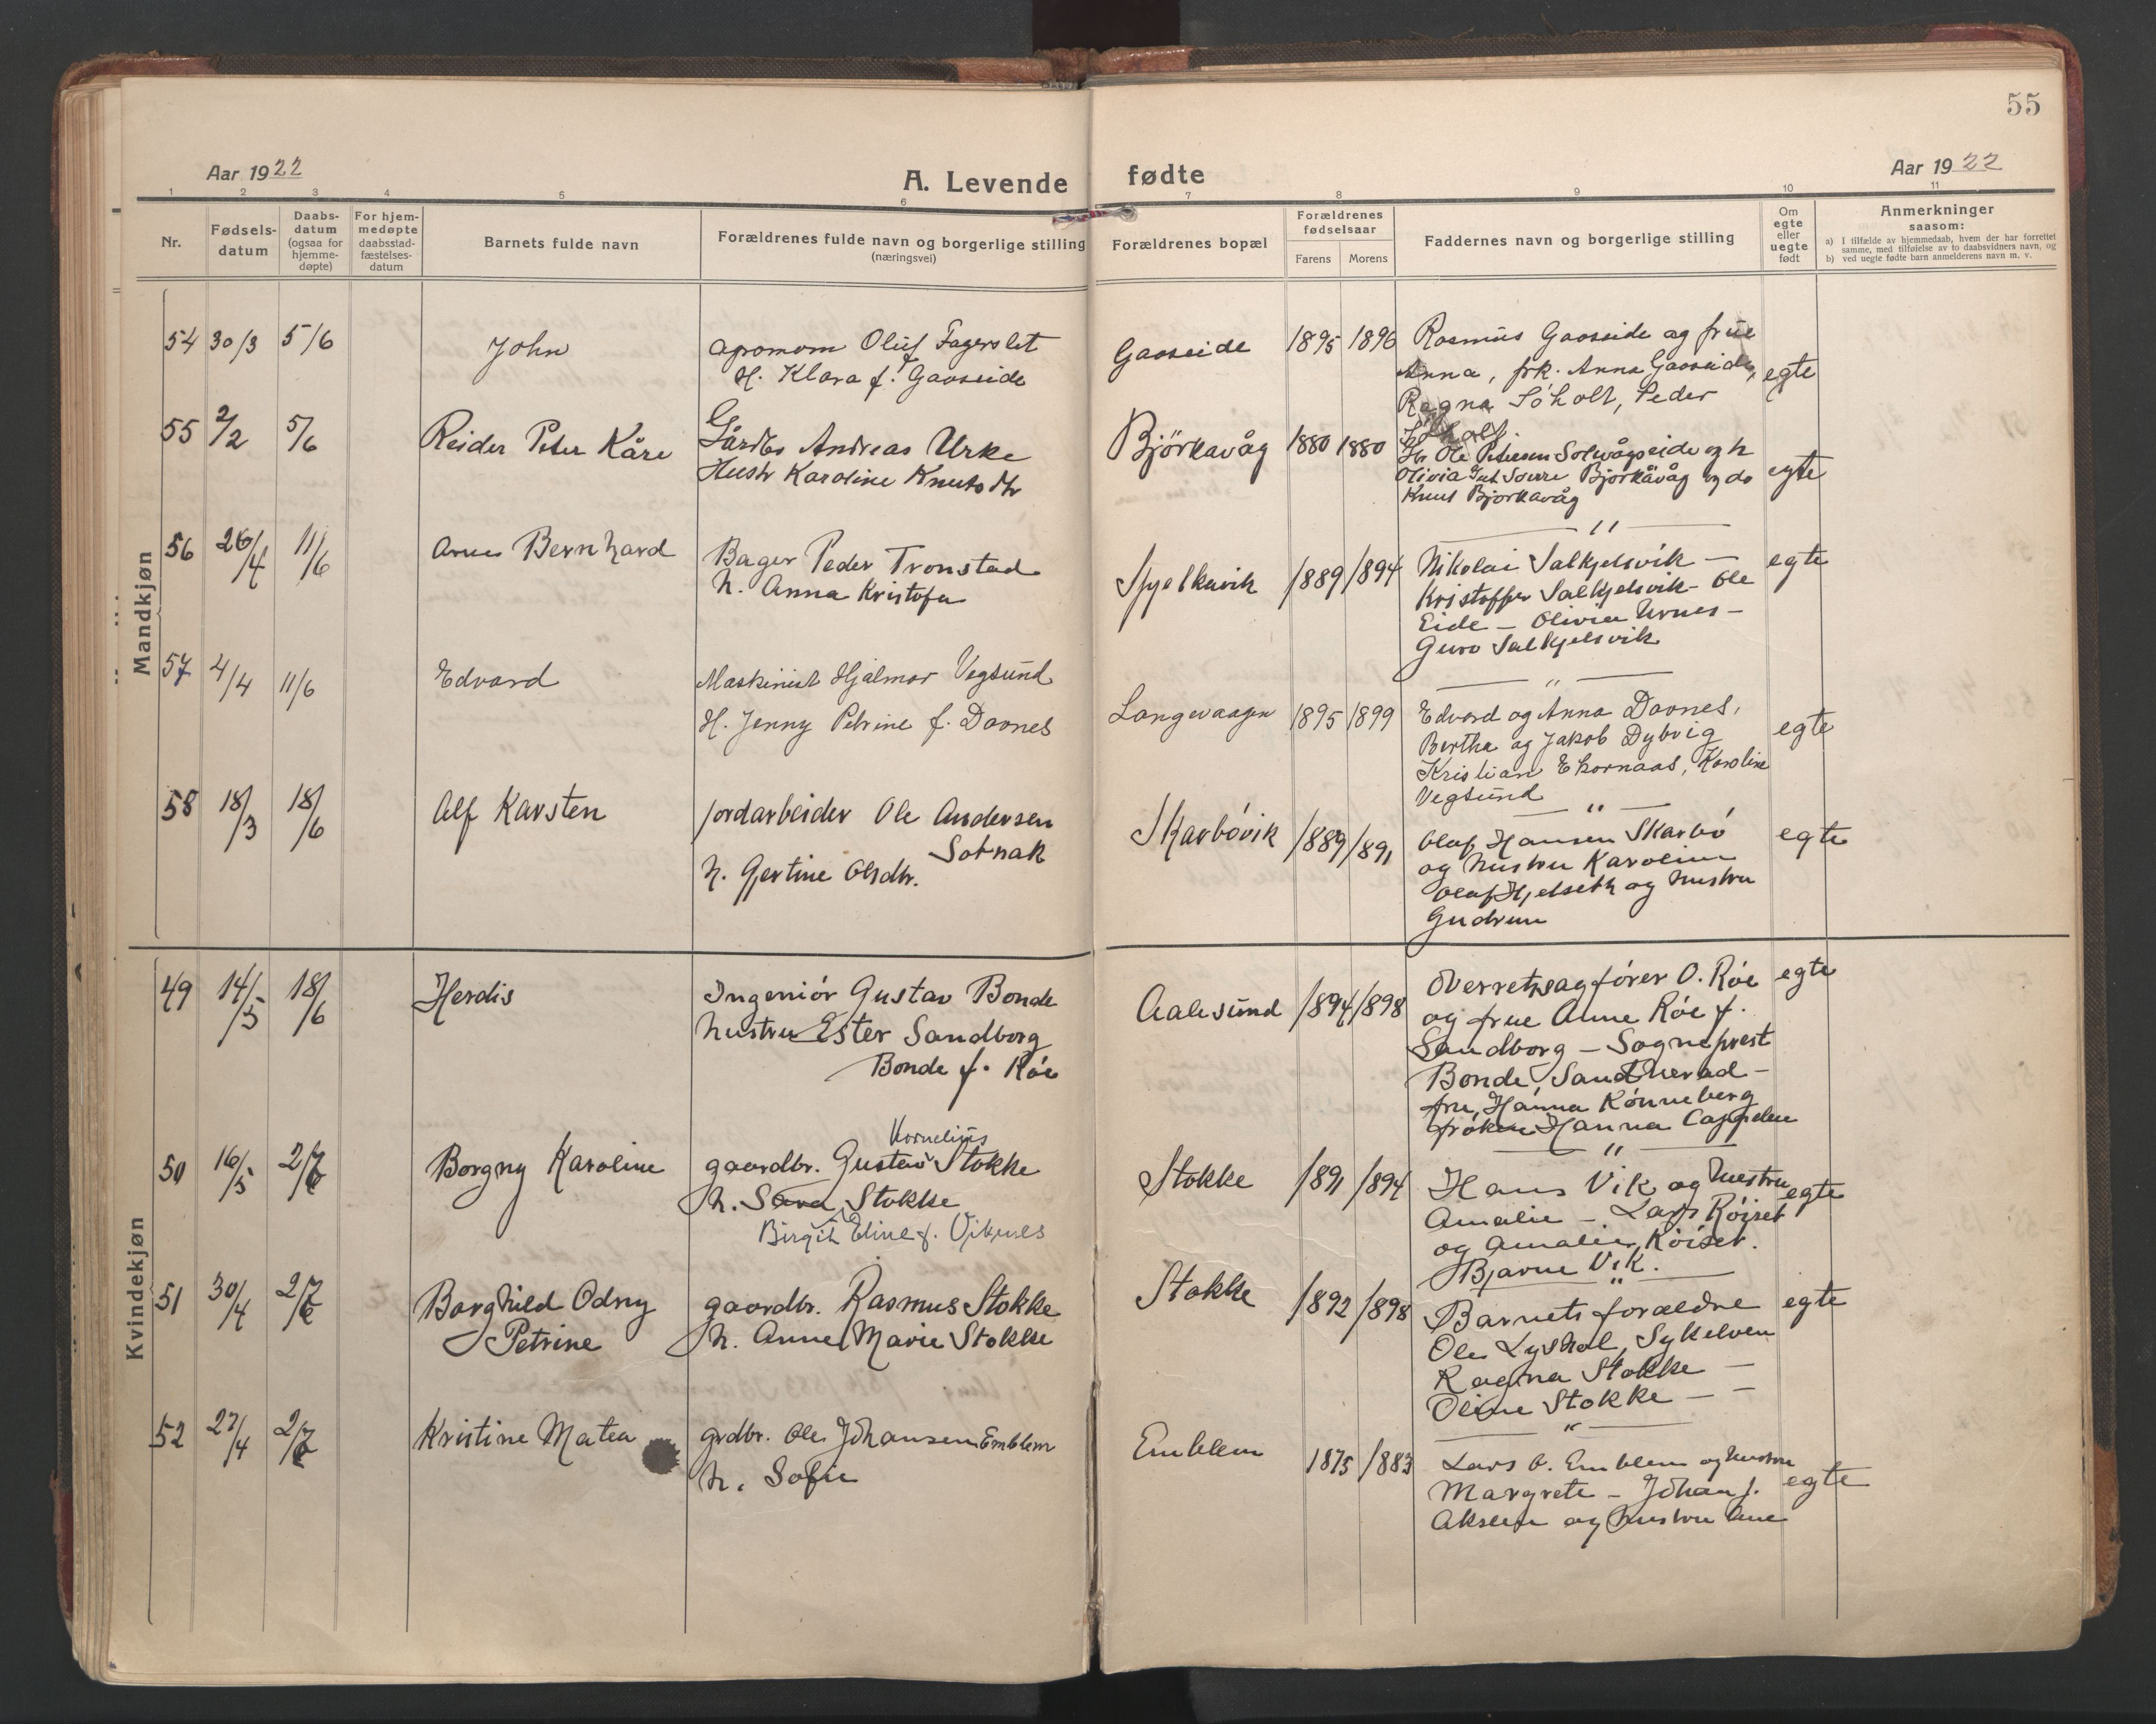 55
Aar 1922
A. Levende fødte
Aar 1922
1 2 3 4 5 6 7 8 9 10 11
Nr.
Fødsels-
datum
Daabs-
datum
(ogsaa for
hjemme-
døpte)
For hjem-
medøpte
daabsstad-
fæstelses-
datum
Barnets fulde navn
Forældrenes fulde navn og borgerlige stilling
(næringsvei)
Forældrenes bopæl
Forældrenes
fødselsaar
Farens Morens
Faddernes navn og borgerlige stilling
Om
egte
eller
uegte
født
Anmerkninger
saasom:
a) I tilfælde av hjemmedaab, hvem der har forrettet
samme, med tilføielse av to daabsvidners navn, og
b) ved uegte fødte barn anmelderens navn m. v.
Mandkjøn
54 30/3 5/6 John
Oluf Fagerslet
H. Klara f. Gaaseide
Gaaseide 1895 1896
Rasmus Gaaseide og frue
Anna, frk. Anna Gaaseide,
Ragna Søholt, Peder
Søholt.
egte
55 2/2 5/6 Reidar Peter Kåre
Gårdbr Andreas Urke
Hustr Karoline Knutsdtr
Björkavåg 1880 1880
Hr Ole Petersen Solevågseide og h
Olivia Björkavåg og do
Knut Bjorkavåg
egte
"
56 26/4 11/6 Arne Bernhard
Bager Peder Tronstad
h. Anna Kristofa
Spjelkavik 1889 1894
Nikolai Valkjelsvik –
Kristoffer Valkjelsvik – Ole
Eide – Olivia Urnes –
Guro Valkjelsvik
egte
"
57 4/4 11/6 Edvard
Maskinist Hjalmar Vegsund
H. Jenny Petrine f. Davnes
Langevaagen 1895 1899
Edvard og Anna Davnes,
Bertha og Jakob Dybvig
Kristian Ekornaas, Karoline
Vegsund
egte
"
58 18/3 18/6 Alf Karsten
Jordarbeider Ole Andersen
Solnak
h. Gjertine Olsdtr.
Skarbövik 1889 1891
Olaf Hansen Skarbö
og hustru Karoline
Olaf Hjelseth og hustru
Gudrun
egte
Kvindekjøn
49 14/5 18/6 Herdis
Ingeniör Gustav Bonde
hustru Ester Sandborg
Bonde f. Röe
Aalesund 1894 1898
Overretssagförer O. Röe
og frue Anne Röe f.
Sandborg – Sogneprest
Bonde, Sandherad –
fru Hanna Rönneberg
fröken Hanna Cappelen
egte
"
50 16/5 2/7 Borgny Karoline
Kornelius
gaardbr. Gustav Stokke
h. Sara Stokke
Birgit Eline f. Vikenes
Stokke 1891 1894
Hans Vik og hustru
Amalie – Lars Röiset
og Amalie Röiset.
Bjarne Vik.
egte
"
51 30/4 2/7 Borghild Odny
Petrine
gaardbr. Rasmus Stokke
h. Anne Marie Stokke
Stokke 1892 1898
Barnets forældre
Ole Lyshol, Sykelven
Ragna Stokke –
Oline Stokke – –
egte
"
52 27/4 2/7 Kristine Matea
grdbr. Ole Johansen Emblem
h. Sofie
Emblem 1875 1883
Lars O. Emblem og hustru
Margrete – Johan J.
Akslen og hustru Ane
egte